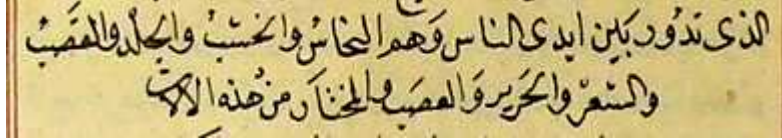 الذى تدور بين ايدى الناس وهم النحاس والخشب والجلد والقصب
والشعر والحرير والعصب والمختار من هذه الالات